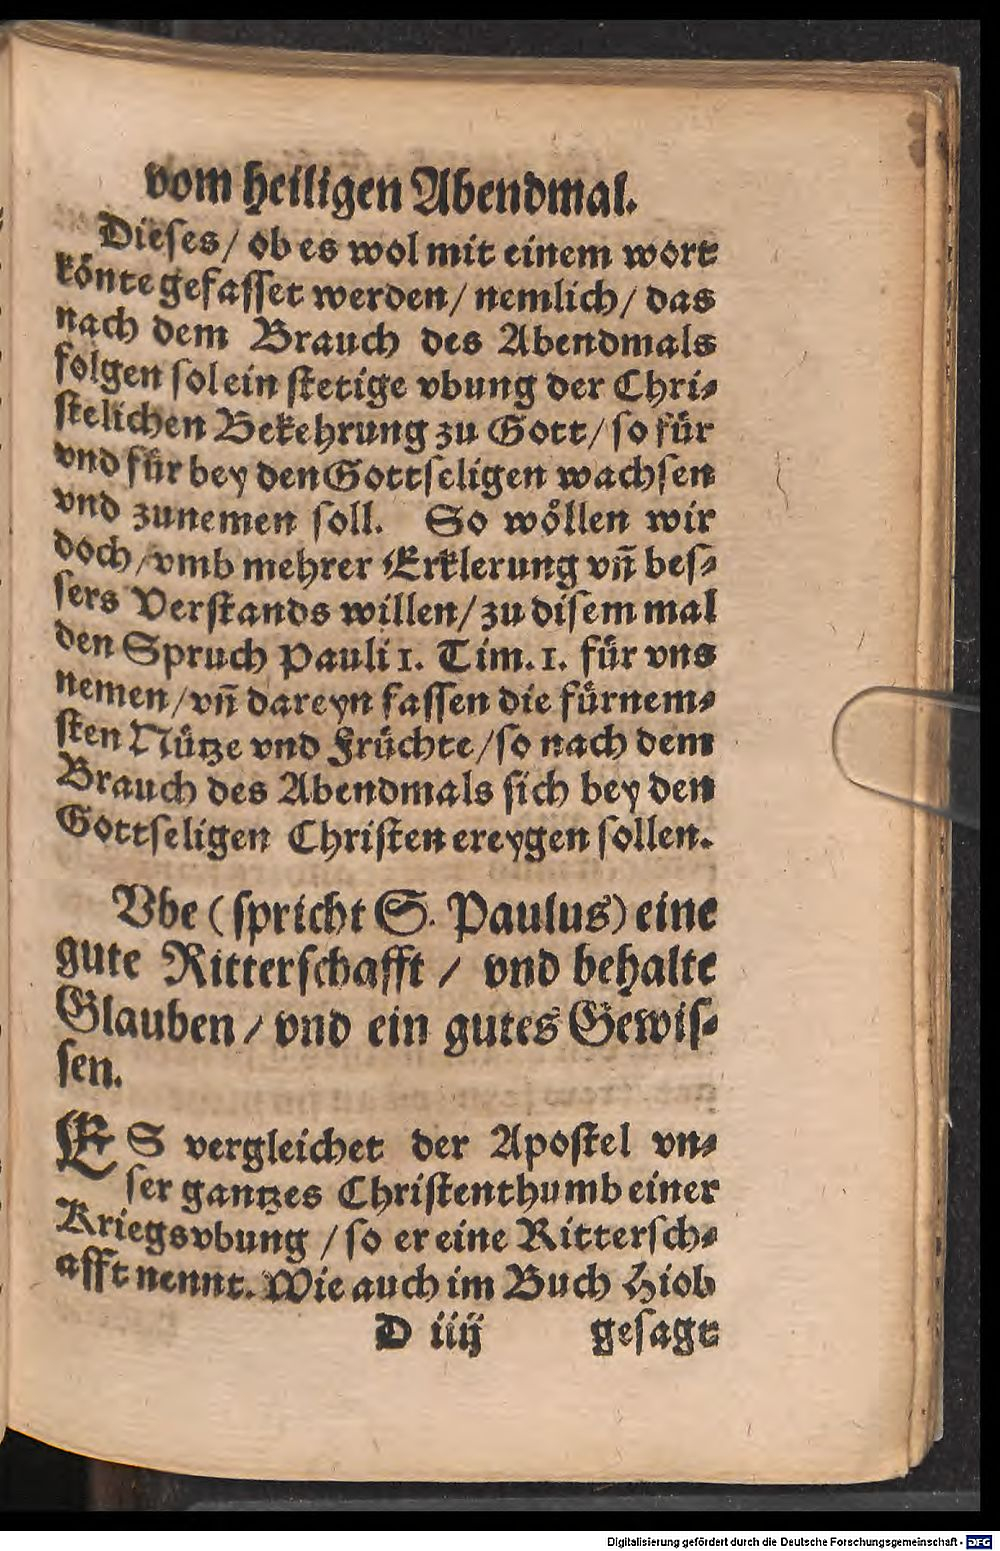 vom heiligen Abendmal.
Dieses/ ob es wol mit einem wort
könte gefasset werden/ nemlich/ das
nach dem Brauch des Abendmals
folgen sol ein stetige vbung der Chri⸗
stelichen Bekehrung zu Gott/ so für
vnd für bey den Gottseligen wachsen
vnd zunemen soll. So wöllen wir
doch/ vmb mehrer Erklerung vñ bes⸗
sers Verstands willen/ zu disem mal
den Spruch Pauli 1. Tim. 1. für vns
nemen/ vñ dareyn fassen die fürnem⸗
sten Nütze vnd Früchte/ so nach dem
Brauch des Abendmals sich bey den
Gottseligen Christen ereygen sollen.
Vbe (spricht S. Paulus) eine
gute Ritterschafft/ vnd behalte
Glauben/ vnd ein gutes Gewis⸗
sen.
ES vergleichet der Apostel vn⸗
ser gantzes Christenthumb einer
Kriegsvbung/ so er eine Rittersch⸗
afft nennt. Wie auch im Buch Hiob
D iiij gesagt
Digitalisierung gefördert durch die Deutsche Forschungsgemeinschaft - DFG